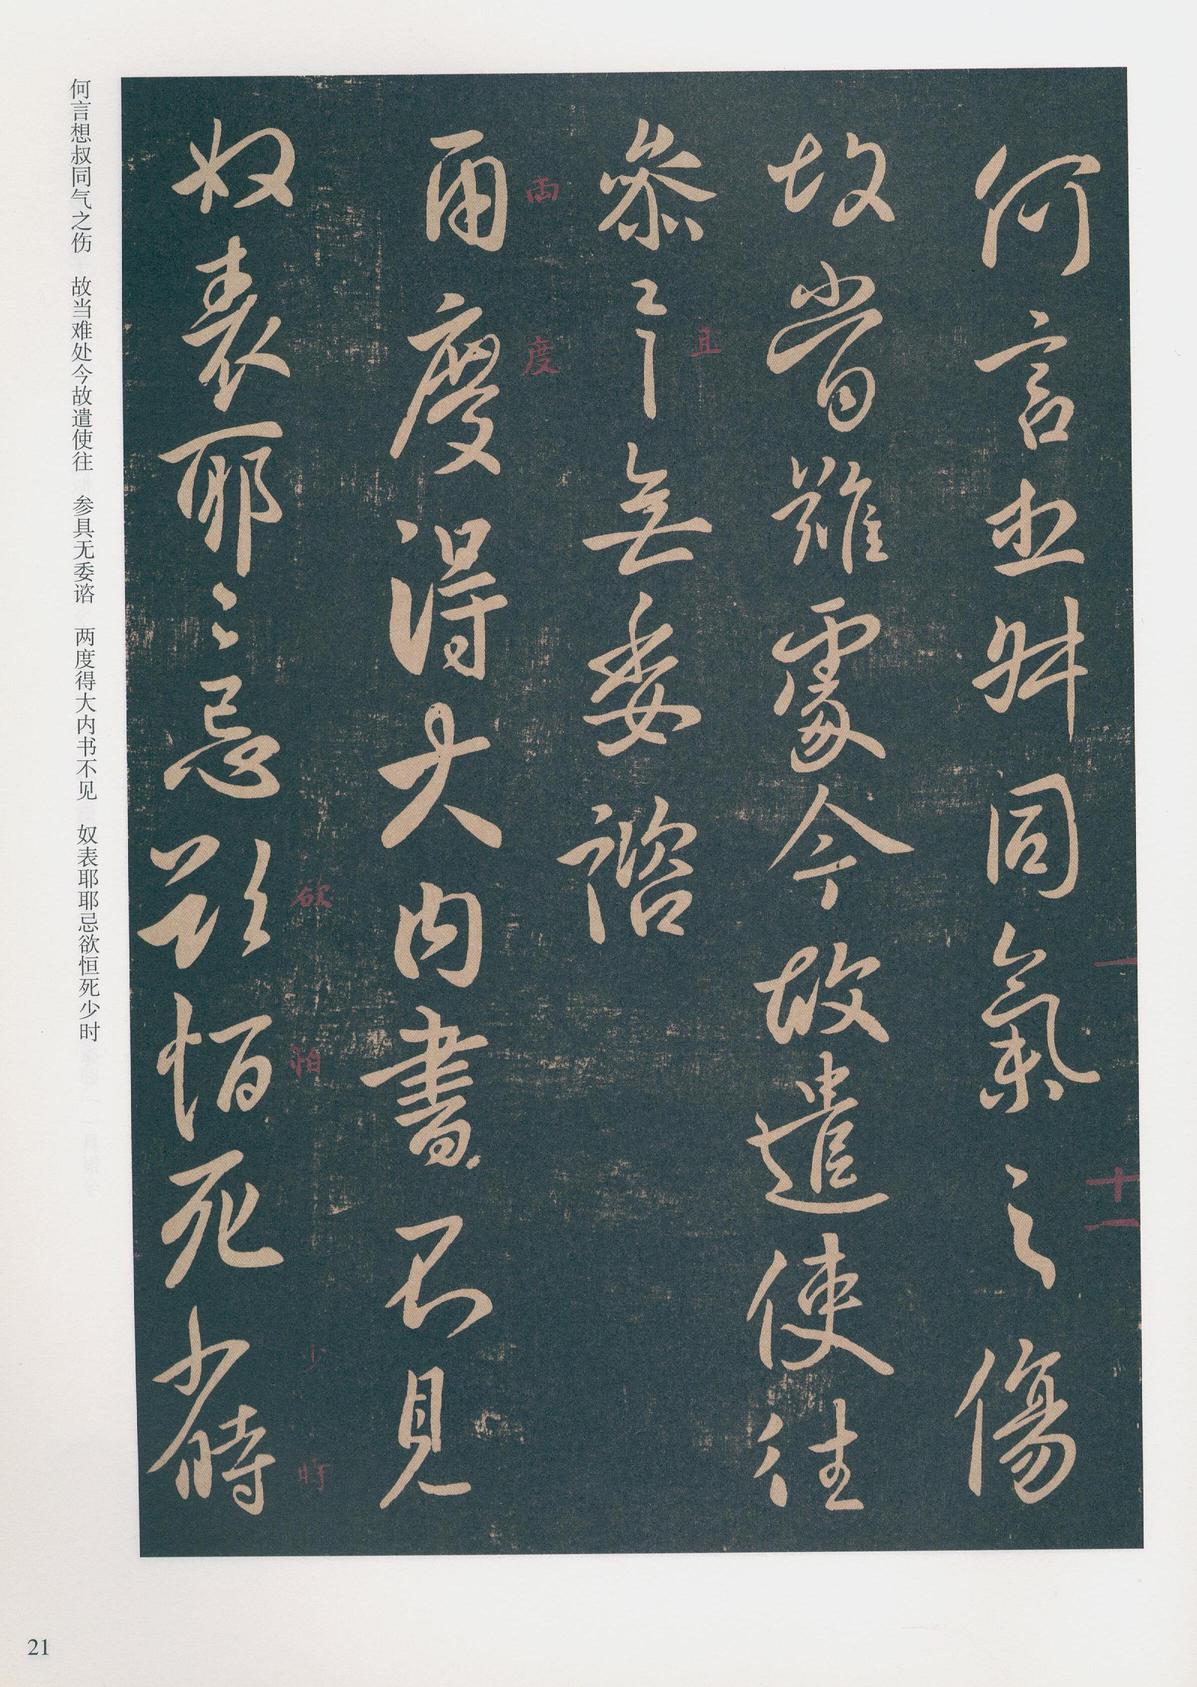 何言想叔同气之伤　故当难处今故遣使往　参具无委谘　两度得大内书不见　奴表耶耶忌欲恒死少时
何言叔同氣之傷
故當難處今故遣使往
參〻無委諮
兩度得大內書不見
奴表耶〻忌欲恒死少時
且
兩
度
欲
怕
少
時
一
十一
21